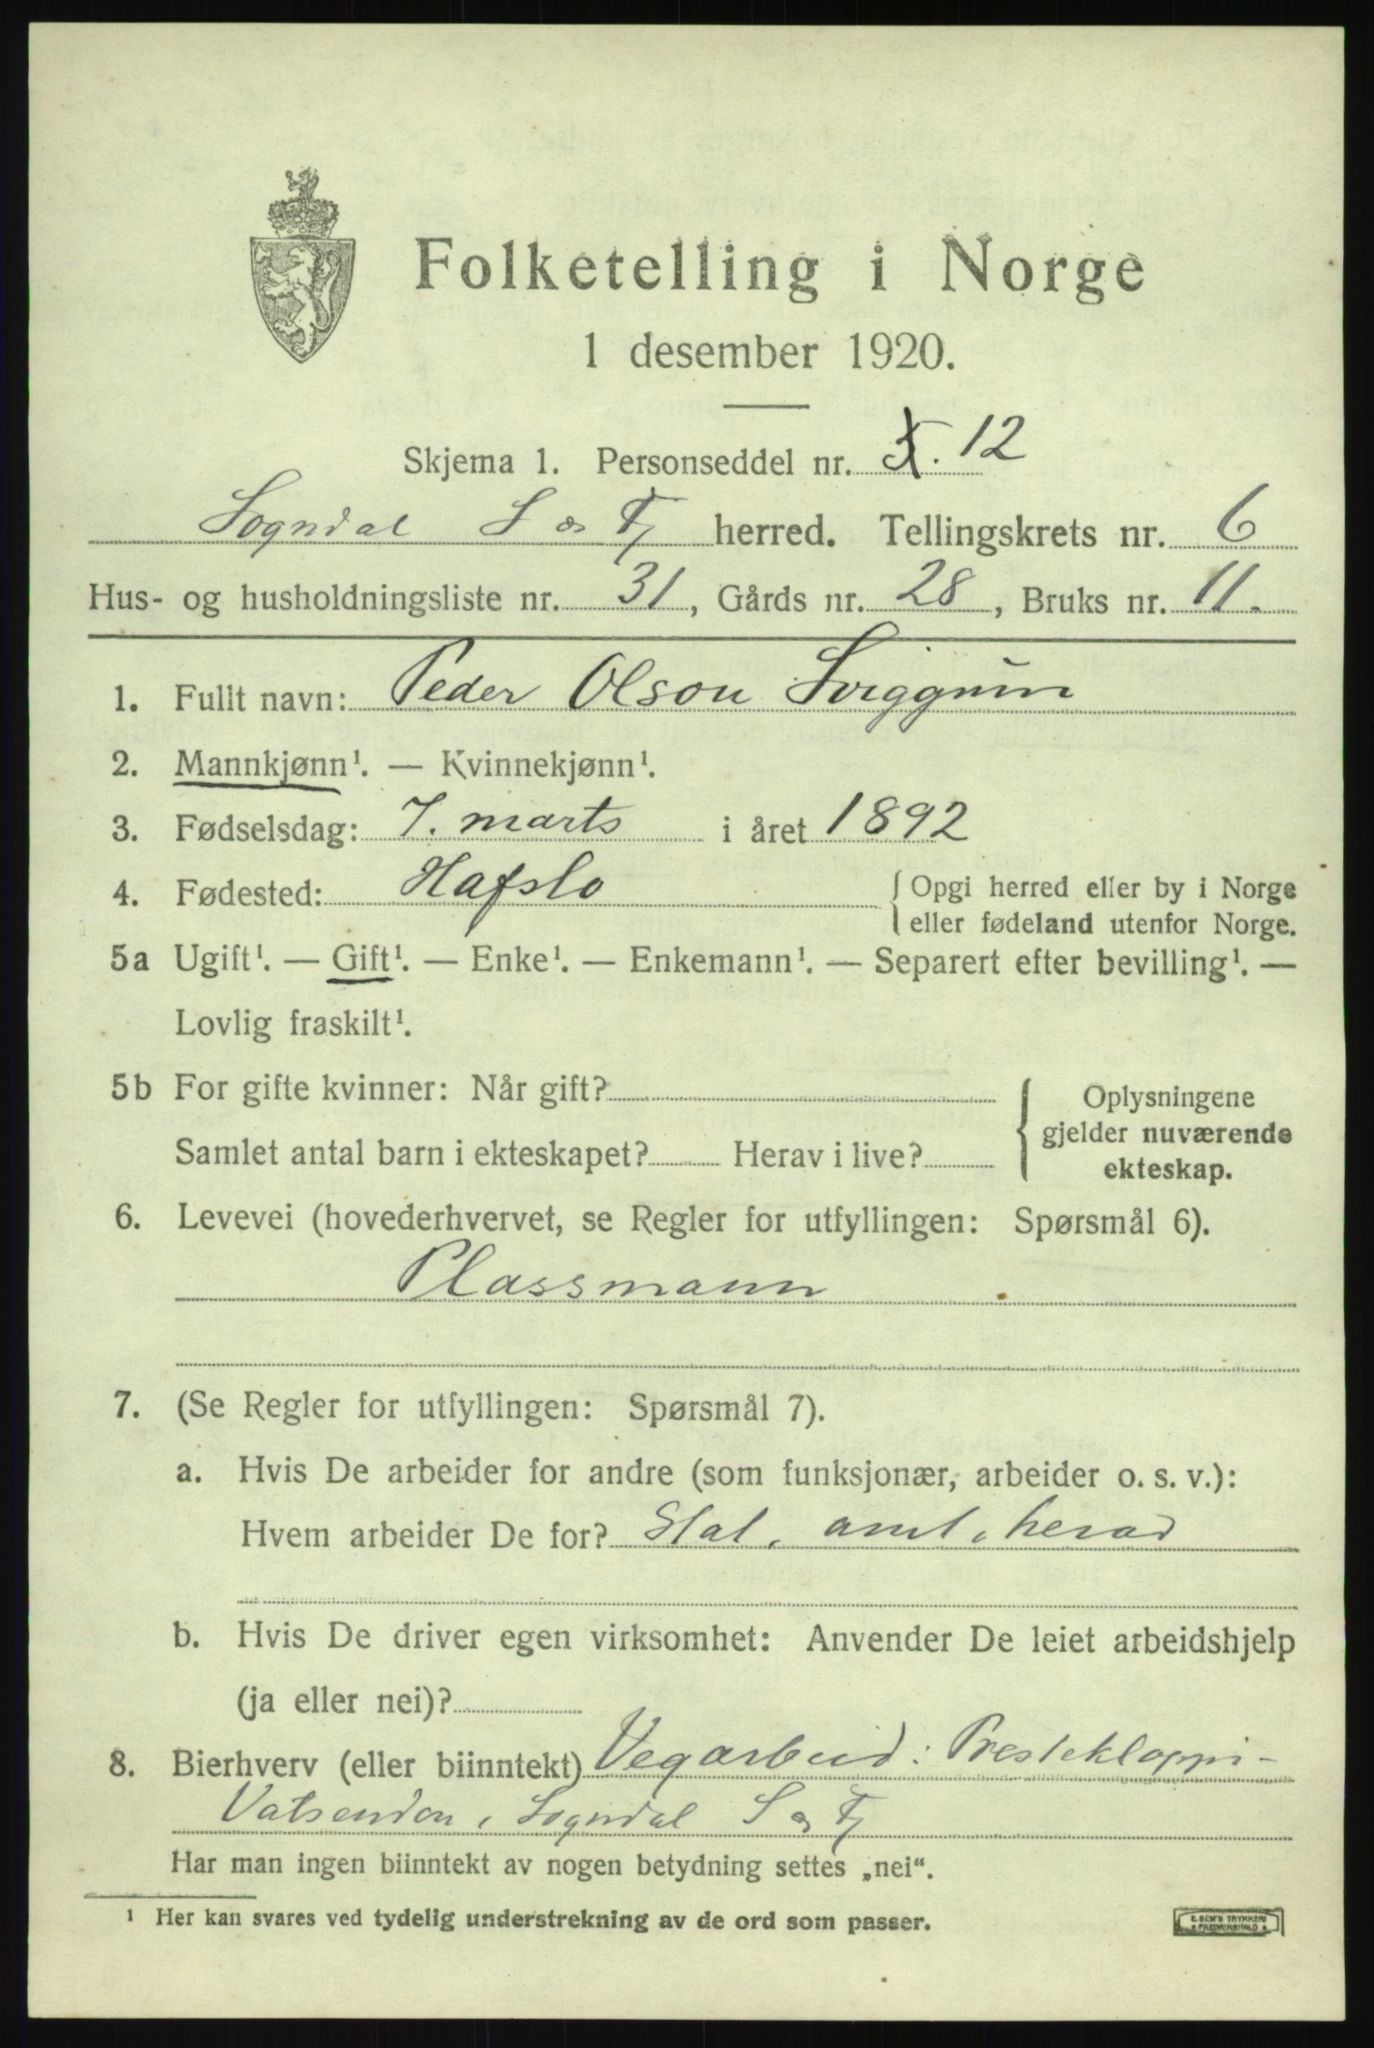 Folketelling i Norge
1 desember 1920.
Skjema 1. Personseddel nr. 12
Sogndal S og Fj herred. Tellingskrets nr. 6
Hus- og husholdningsliste nr. 31, Gårds nr. 28, Bruks nr. 11.
1. Fullt navn: Peder Olson Sviggum
2. Mannkjønn¹. — Kvinnekjønn¹.
3. Fødselsdag: 7. marts i året 1892
4. Fødested: Hafslo { Opgi herred eller by i Norge
eller fødeland utenfor Norge.
5a Ugift¹. — Gift¹. — Enke¹. — Enkemann¹. — Separert efter bevilling¹. —
Lovlig fraskilt¹.
5b For gifte kvinner: Når gift? { Oplysningene
gjelder nuværende
Samlet antal barn i ekteskapet? Herav i live? ekteskap.
6. Levevei (hovederhvervet, se Regler for utfyllingen: Spørsmål 6).
Plassmann
7. (Se Regler for utfyllingen: Spørsmål 7).
a. Hvis De arbeider for andre (som funksjonær, arbeider o. s. v.):
Hvem arbeider De for? Stat, amt, herad
b. Hvis De driver egen virksomhet: Anvender De leiet arbeidshjelp
(ja eller nei)?
8. Bierhverv (eller biinntekt) Vegarbeid: Prestekloppi-
Vatsenden, Sogndal S og Fj
Har man ingen biinntekt av nogen betydning settes „nei“.
¹ Her kan svares ved tydelig understrekning av de ord som passer.
E. SEM'S TRYKKERI
FREDRIKSHALD